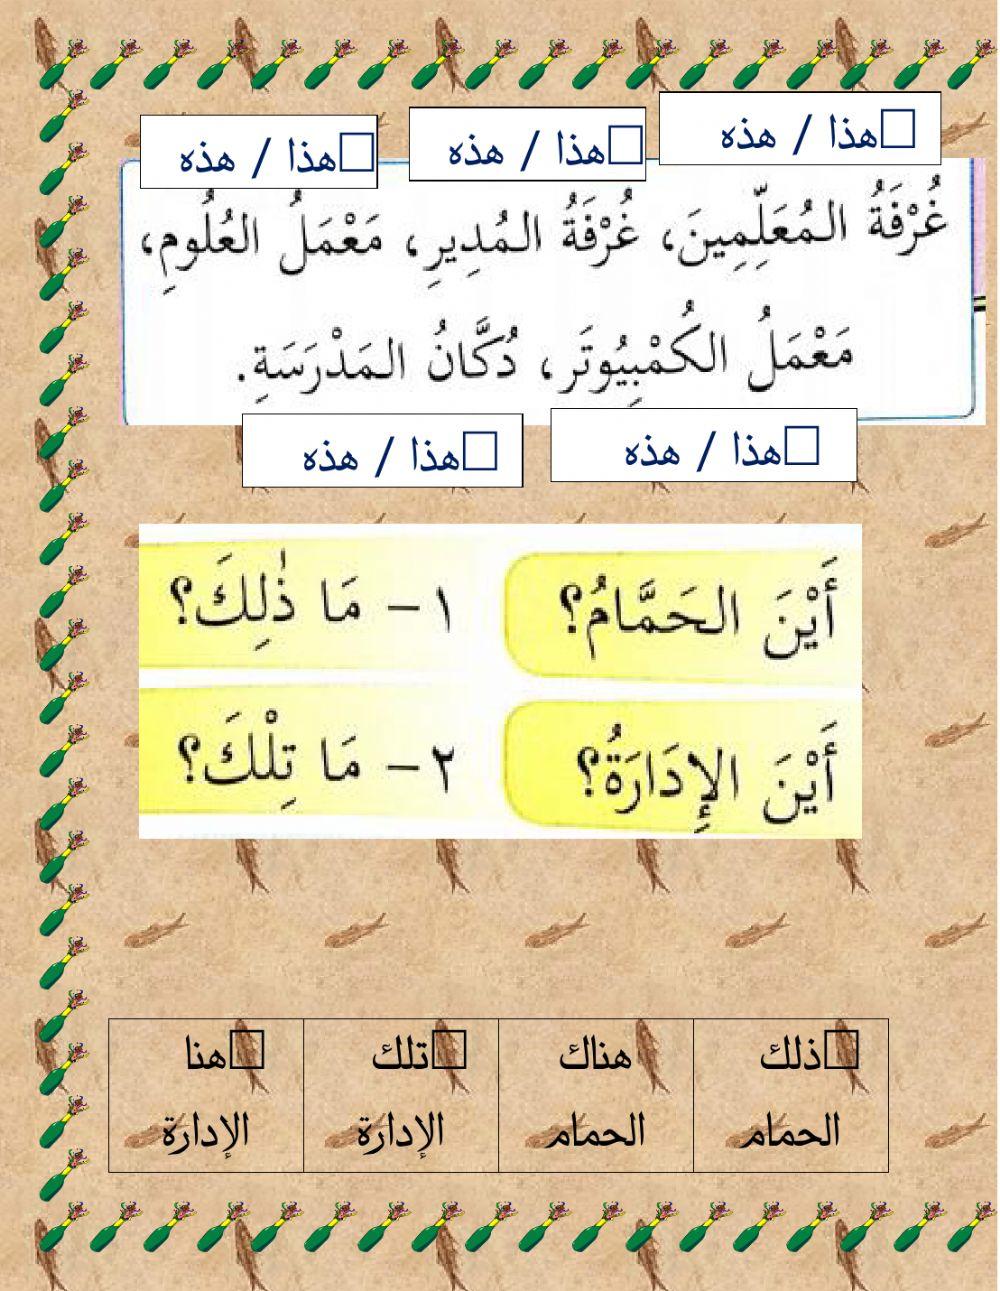 هذا / هذه
هذا / هذه
هذا / هذه
غُرْفَةُ المُعَلِّمِينَ، غُرْفَةُ المُدِيرِ، مَعْمَلُ العُلُومِ،
مَعْمَلُ الكُمْبِيُوتَر، دُكَّانُ المَدْرَسَةِ.
هذا / هذه
هذا / هذه
أَيْنَ الحَمَّامُ؟
١ – مَا ذٰلِكَ؟
أَيْنَ الإِدَارَةُ؟
٢ – مَا تِلْكَ؟
ذلك
الحمام
هناك
الحمام
تلك
الإدارة
هنا
الإدارة